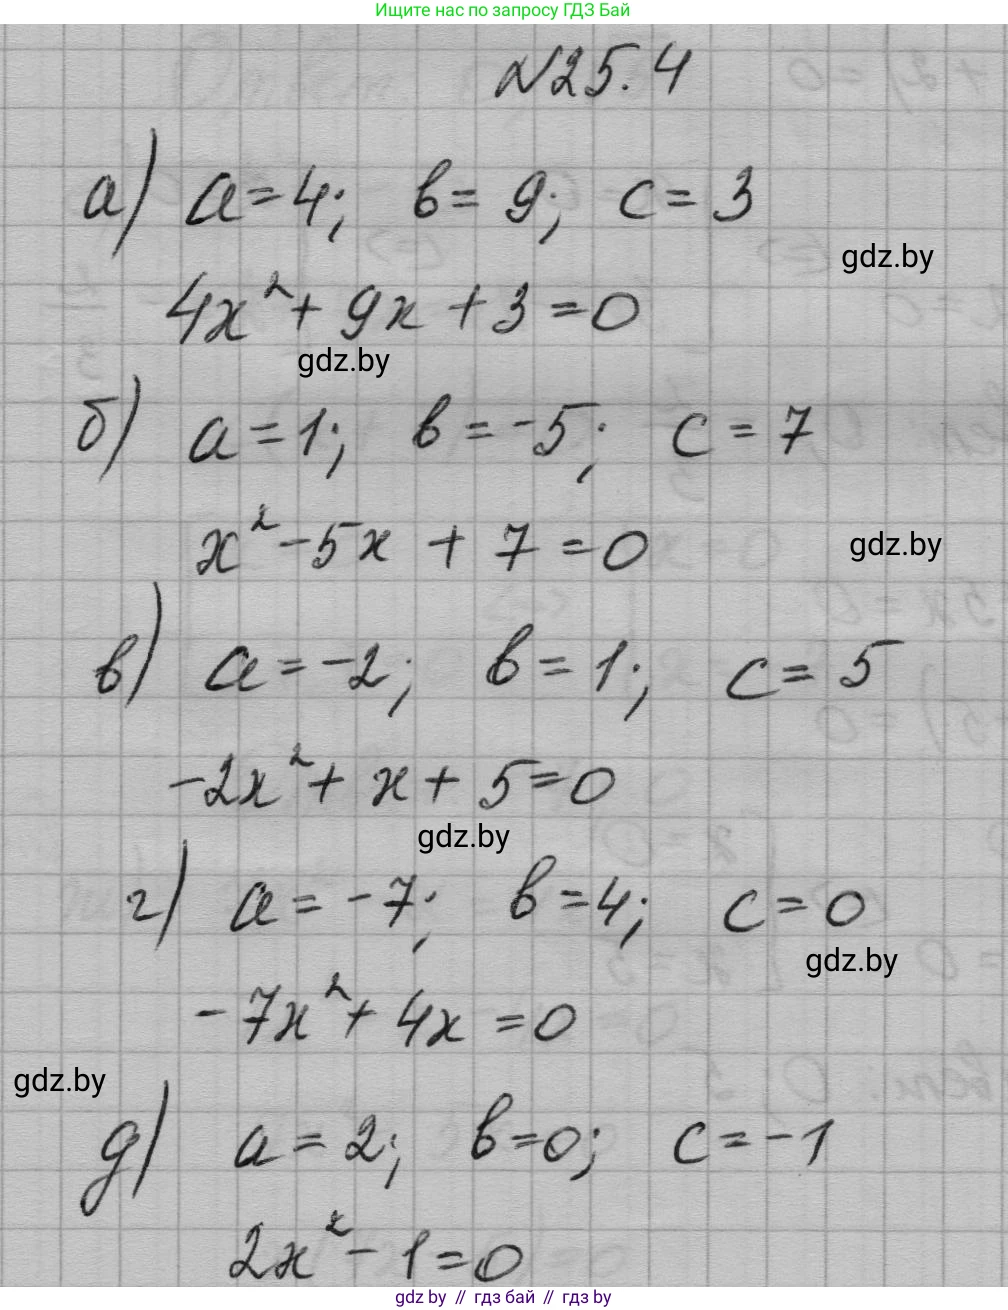 Ищите нас по запросу ГДЗ Бай
№25.4
а) a=4; в= 9; c= 3
gdz.by
4x²+ 9x + 3 =0
gdz.by
б) a=1; в=-5; c= 7
x²-5x + 7 =0
gdz.by
в) a=-2; в= 1; c= 5
-2x²+ x+ 5=0
gdz.by
г) a=-7; в=4; c=0
gdz.by
-7x²+ 4x =0
gdz.by
д) a=2; в=0; c=-1
2x²- 1=0
gdz.by // гдз бай // gdz.by